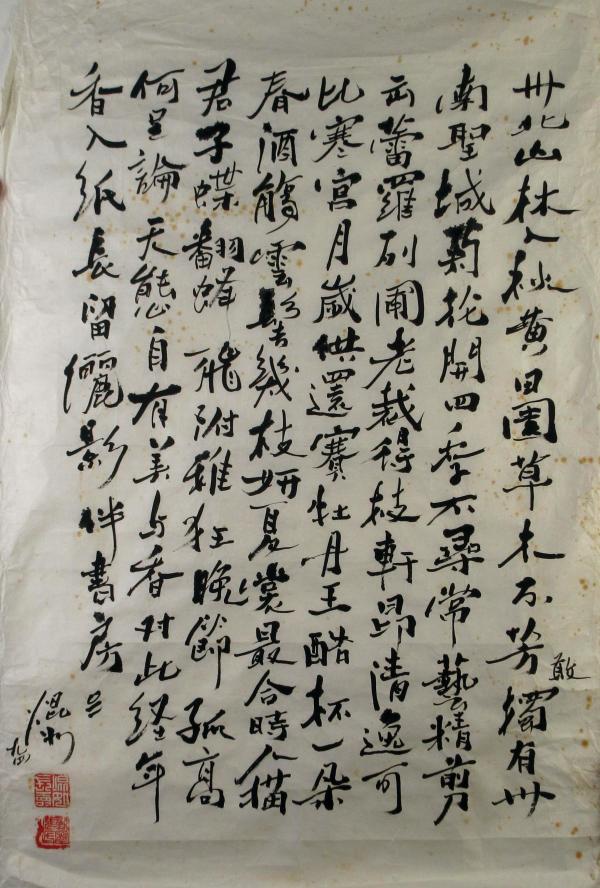 州北山林入秋黄田園草木不芳獨有州
敢
南聖城菊花開四季不尋常藝精剪
云蕾羅列圃老裁得枝軒昂清逸可
比寒宮月歲供還賽牡丹王酷杯一朵
春酒觴雲髻幾枝妍夏裳最合時人猫
君子蝶翻蜂飛附雅狂晚節孤高
何足論天態自有美与香对此経年
香入紙長留儷影伴書房